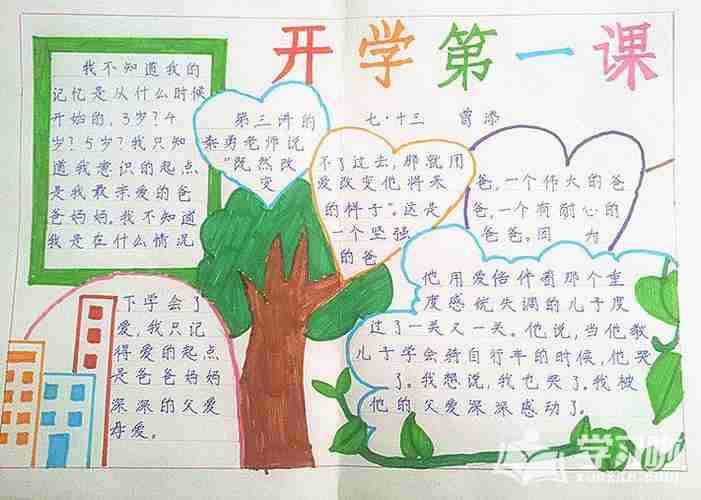 开学第一课
七·十三 曾添
我不知道我的
记忆是从什么时候
开始的，3岁？4
岁？5岁？我只知
道我意识的起点
是我最亲爱的爸
爸妈妈。我不知道
我是在什么情况
下学会了
爱，我只记
得爱的起点
是爸爸妈妈
深深的父爱
母爱。
第三讲的
秦勇老师说
“既然改
变
不了过去，那就用
爱改变他将来
的样子”。这是
一个坚强
的爸
爸，一个伟大的爸
爸，一个有耐心的
爸爸。因为
他用爱陪伴着那个重
度感统失调的儿子度
过了一天又一天。他说，当他教
儿子学会骑自行车的时候，他哭
了。我想说，我也哭了。我被
他的父爱深深感动了。
学习啦